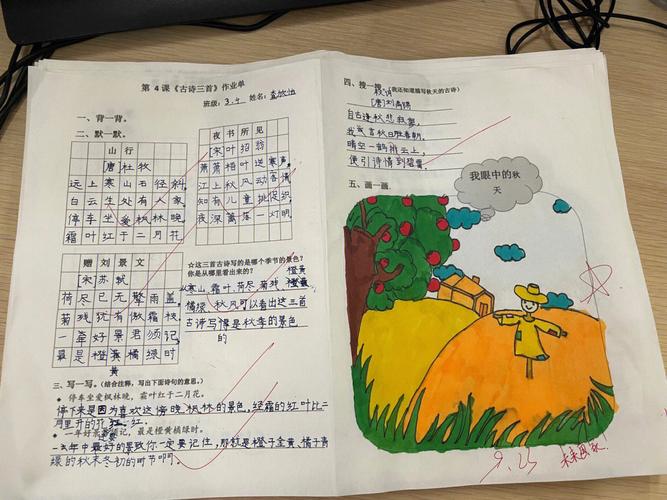 第 4 课《古诗三首》作业单
班级：3.4 姓名：
一、背一背。
二、默一默。
山行
[唐]杜牧
远上寒山石径斜
白云生处有人家
停车坐爱枫林晚
霜叶红于二月花
夜书所见
[宋]叶绍翁
萧萧梧叶送寒声
江上秋风动客情
知有儿童挑促织
夜深篱落一灯明
赠刘景文
[宋]苏轼
荷尽已无擎雨盖
菊残犹有傲霜枝
一年好景君须记
最是橙黄橘绿时
黄
☆这三首古诗写的是哪个季节的景色？
你是从哪里看出来的？ 橙黄
从寒山、霜叶、荷尽、菊残
橘绿、秋风可以看出这三首
古诗写得是秋季的景色
的
三、写一写。（结合注释，写出下面诗句的意思。）
停车坐爱枫林晚，霜叶红于二月花。
停下来是因为喜欢这傍晚枫林的景色，经霜的红叶比二
月里开的花 红。
一年好景君须记， 最是橙黄橘绿时。
一年中最好的景致你一定要记住，那就是橙子金黄、橘子青
绿的秋末冬初的时节啊。
四、搜一搜。（我还知道描写秋天的古诗）
秋词
[唐]刘禹锡
自古逢秋悲寂寥，
我言秋日胜春朝。
晴空一鹤排云上，
便引诗情到碧霄。
五、画一画。
我眼中的秋
天
9.25
未来画家！